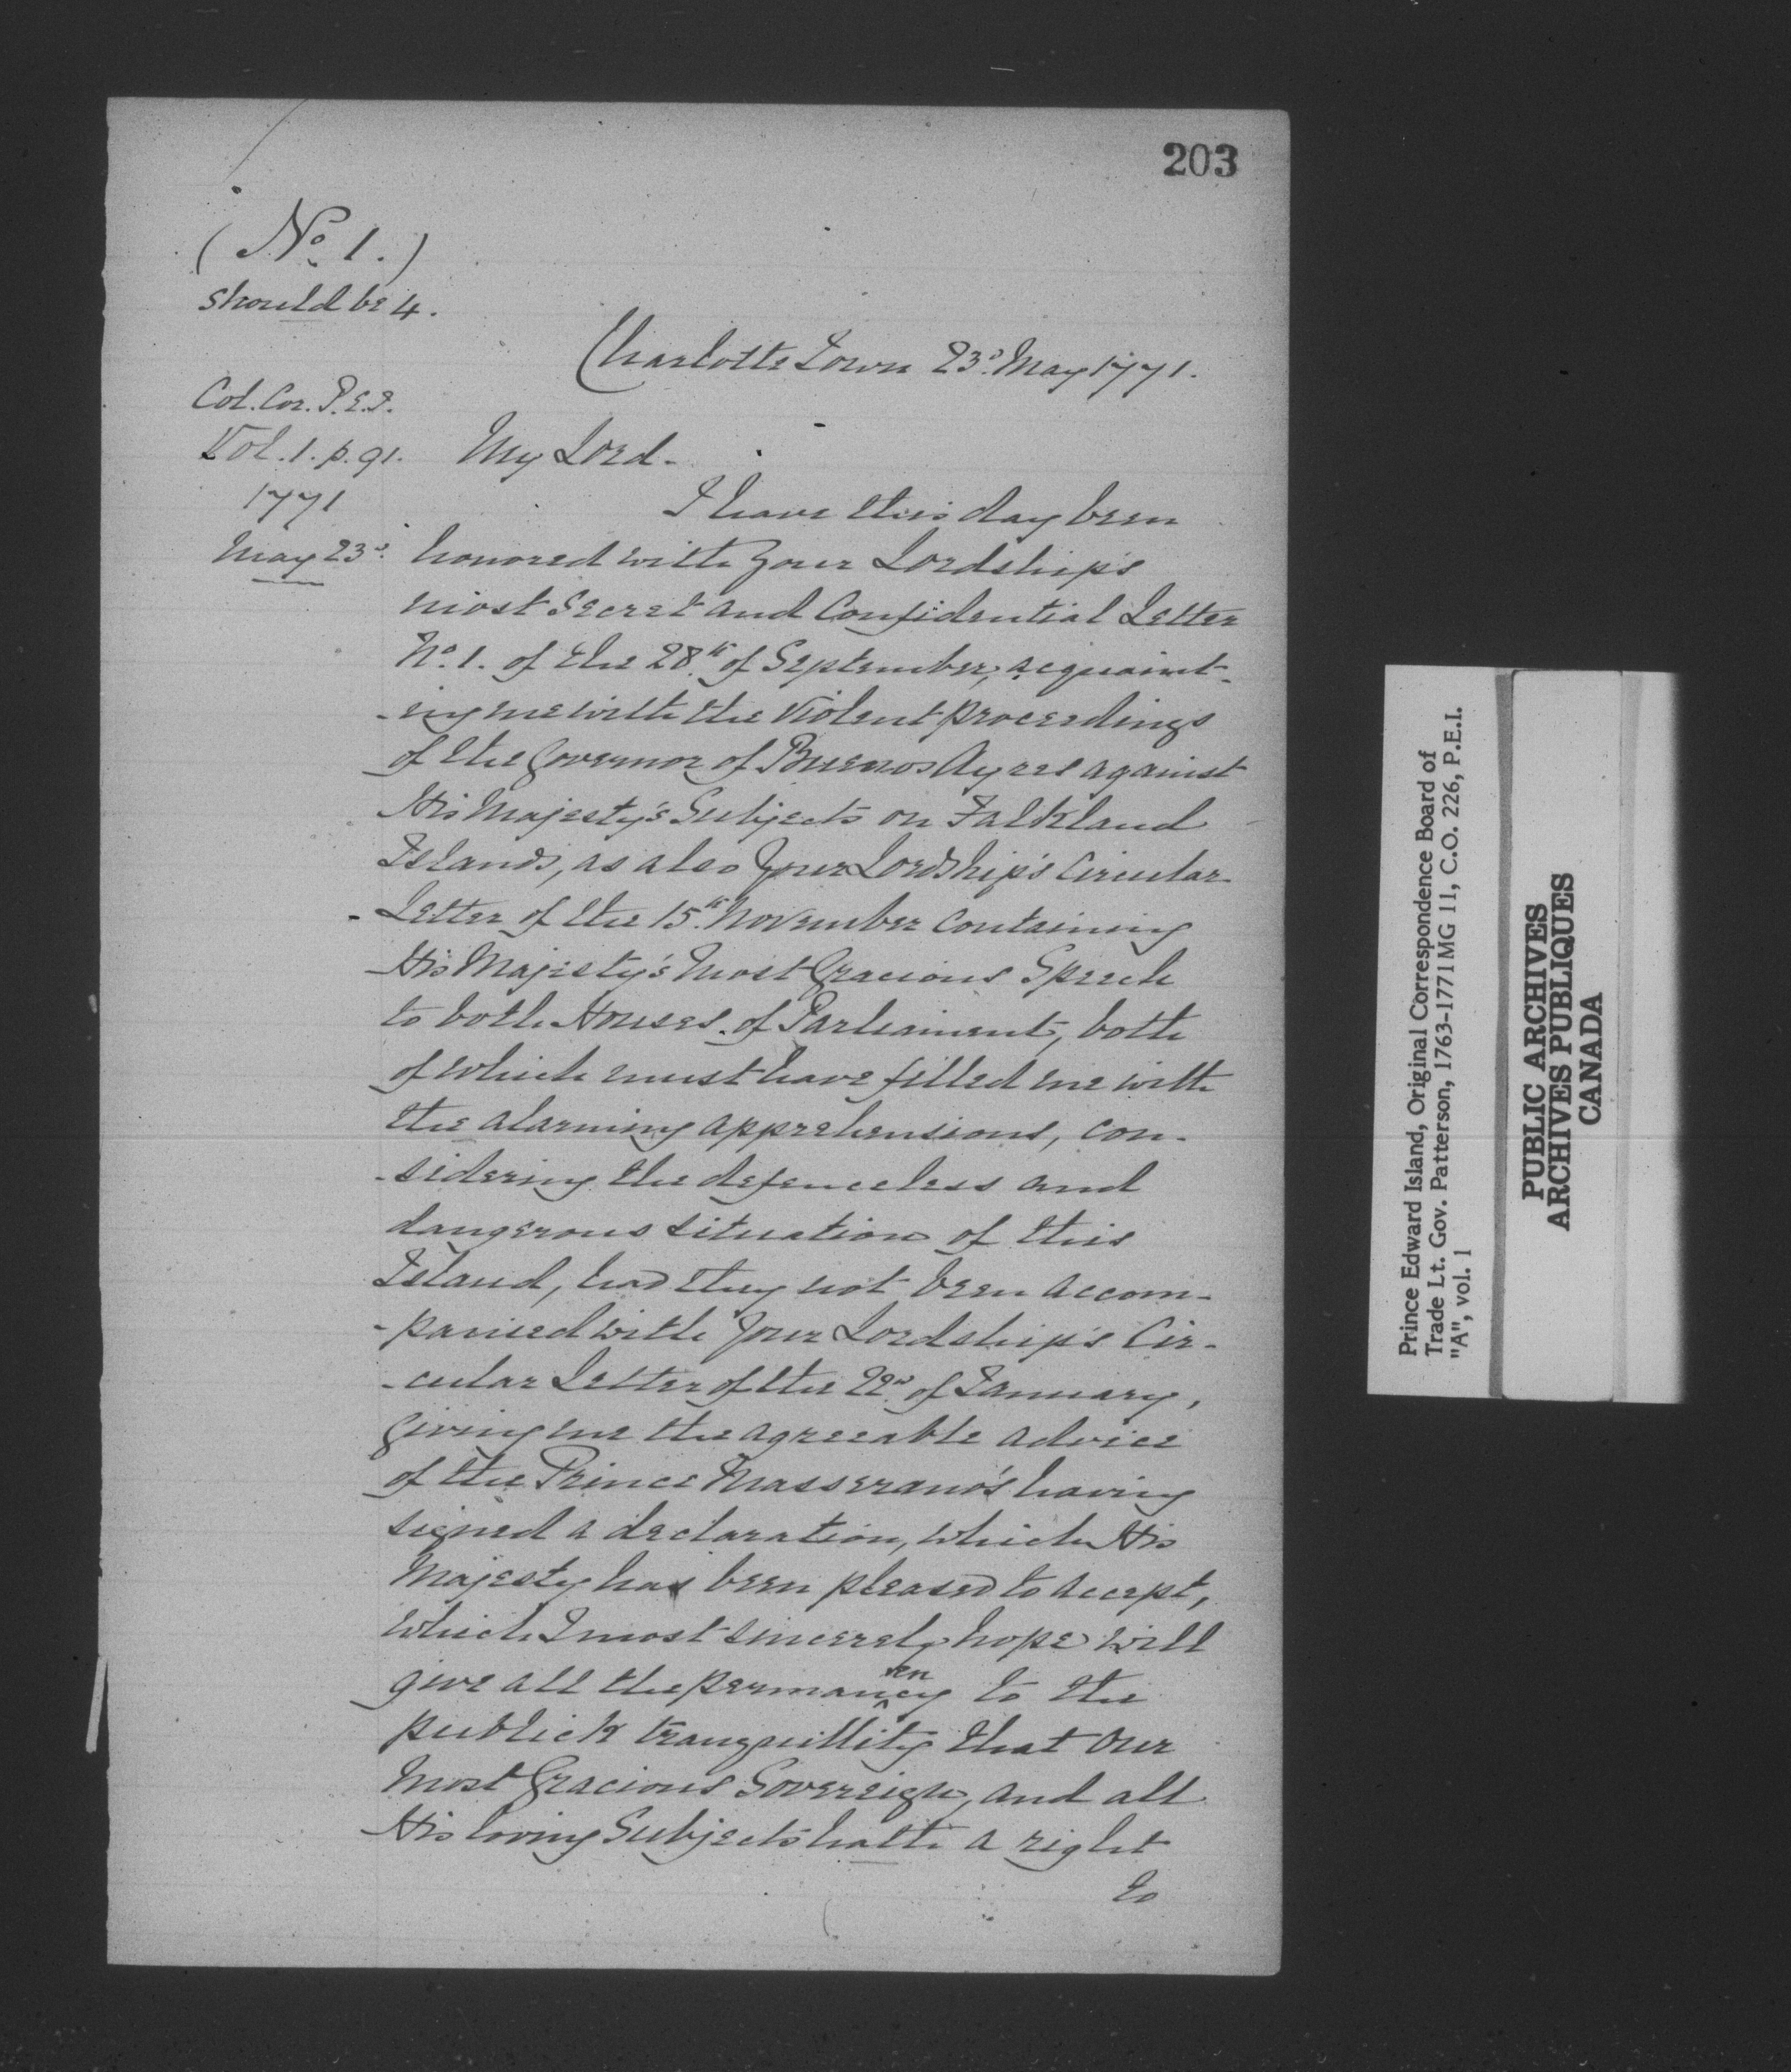 203
(No. 1.)
should be 4.
Charlotte Town 23d. May 1771.
Col. Cor. P.E.I.
Vol. 1. p. 91.
1771
May 23d.
My Lord -
I have this day been
honored with Your Lordship's
most Secret and Confidential Letter
No. 1. of the 28th. of September, acquaint-
-ing me with the violent proceedings
of the Governor of Buenos Ayres against
His Majesty's Subjects on Falkland
Islands, as also Your Lordship's Circular
Letter of the 15th. November containing
His Majesty's Most Gracious Speech
to both Houses of Parliament, both
of which must have filled me with
the alarming apprehensions, con-
-sidering the defenceless and
dangerous situation of this
Island, had they not been accom-
-panied with Your Lordship's Cir-
-cular Letter of the 22d. of January,
giving me the agreeable advice
of the Prince Masserano's having
signed a declaration, which His
Majesty has been pleased to accept,
which I most sincerely hope will
give all the permanency to the
publick tranquillity that Our
Most Gracious Sovereign, and all
His loving Subjects hath a right
to
Prince Edward Island, Original Correspondence Board of
Trade Lt. Gov. Patterson, 1763-1771 MG 11, C.O. 226, P.E.I.
"A", vol. 1
PUBLIC ARCHIVES
ARCHIVES PUBLIQUES
CANADA